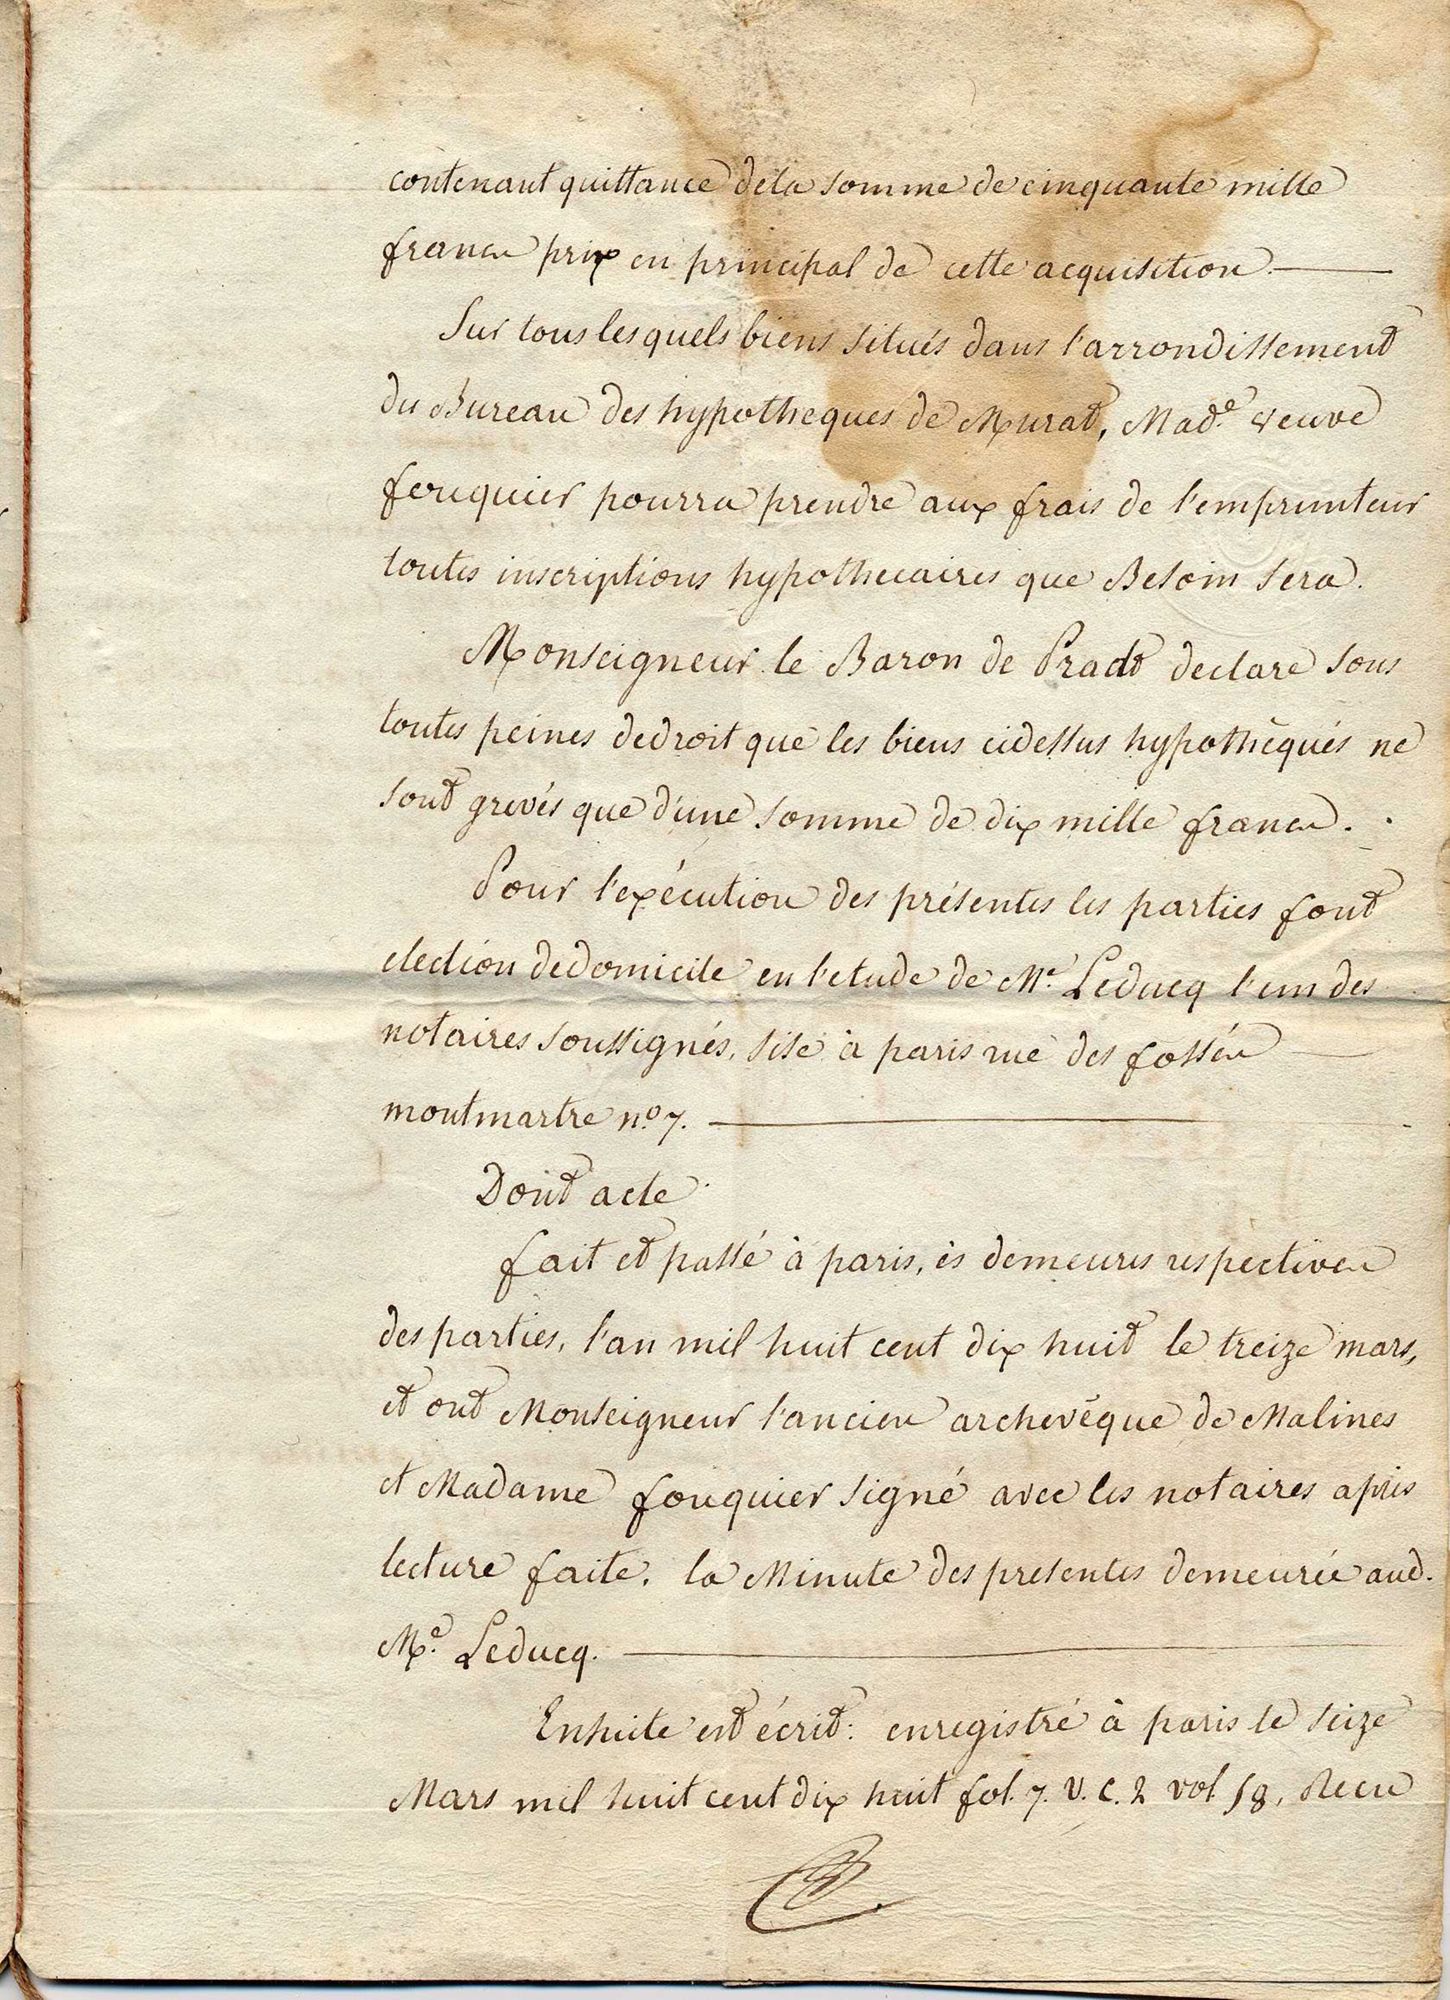 contenant quittance dela somme de cinquante mille
francs prix en principal de cette acquisition
Sur tous lesquels biens situés dans l'arrondissement
du Bureau des hypotheques de Murat, Made veuve
fouquier pourra prendre aux frais de l'emprunteur
toutes inscriptions hypothecaires que Besoin sera.
Monseigneur le Baron de Pradt declare sous
toutes peines dedroit que les biens cidessus hypothèqués ne
sont grevés que d'une somme de dix mille francs.
Pour l'exécution des présentes les parties font
election dedomicile en l'etude de Me. Leducq l'un des
notaires soussignés, sise à paris rue des fossés
montmartre no. 7.
Dont acte.
fait et passé à paris, ès demeures respectives
des parties, l'an mil huit cent dix huit le treize mars,
et ont Monseigneur l'ancien archevêque de Malines
et Madame fouquier signé avec les notaires après
lecture faite. la Minute des presentes demeurée aud.
Me. Leducq.
Ensuite est écrit: enregistré à paris le seize
Mars mil huit cent dix huit fol. 7. V. C. 2 vol. 58. Recu